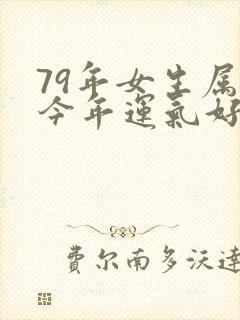 79年女生属
今年運氣好
費尔南多沃達